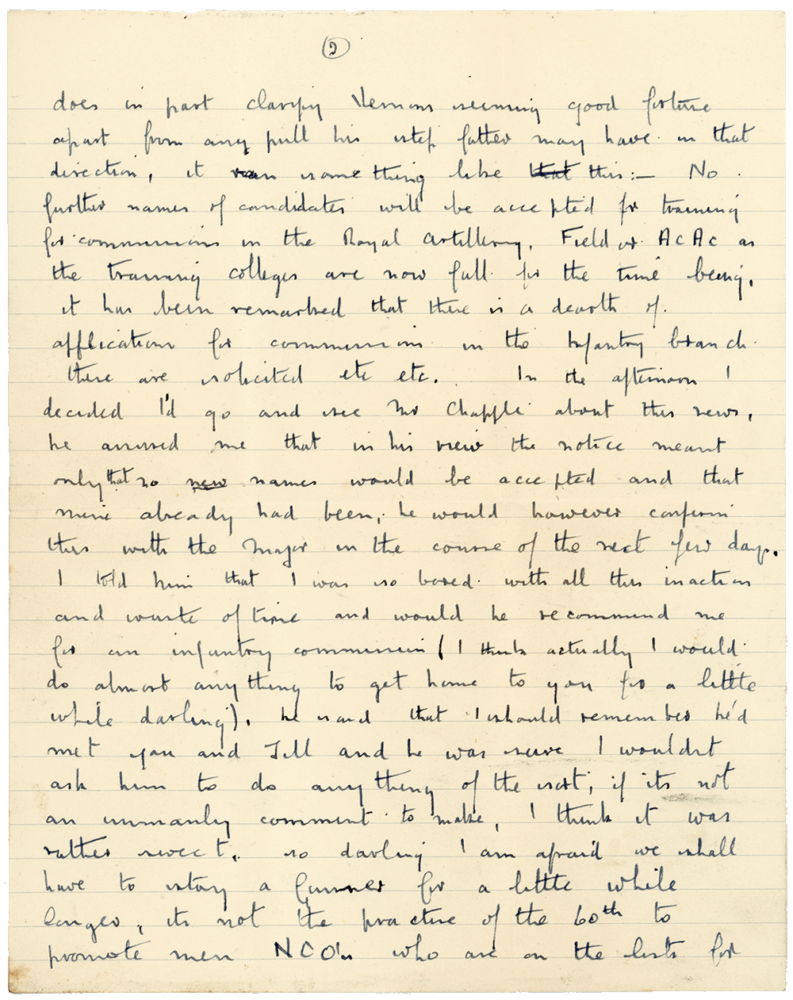 2
does in part clarify Vernons seeming good fortune
apart from any pull his step father may have in that
direction, it ran something like that this:— No
further names of candidates will be accepted for training
for commissions in the Royal Artillery, Field or Ac Ac as
the training colleges are now full for the time being,
it has been remarked that there is a dearth of
applications for commissions in the Infantry branch
these are solicited etc etc. In the afternoon I
decided I'd go and see Mr Chapple about this news,
he assured me that in his view the notice meant
only that no new names would be accepted and that
mine already had been, he would however confirm
this with the Major in the course of the next few days.
I told him that I was so bored with all this inaction
and waste of time and would he recommend me
for an infantry commission (I think actually I would
do almost anything to get home to you for a little
while darling), he said that I should remember he'd
met you and Jill and he was sure I wouldn't
ask him to do anything of the sort, if its not
an unmanly comment to make, I think it was
rather sweet, so darling I am afraid we shall
have to stay a Gunner for a little while
longer, its not the practice of the 60th to
promote men NCO's who are on the lists for